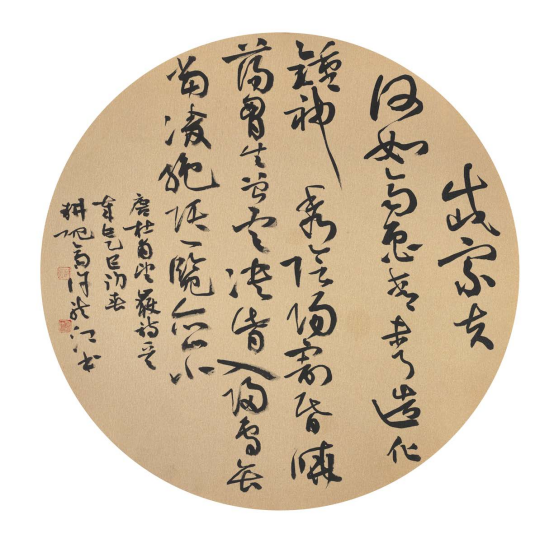 岱宗夫
何如齊魯青未了造化
鍾神秀陰陽割昏曉
蕩胸生曾雲決眥入歸鳥會
當凌絕頂一覽眾山小
唐杜甫望嶽詩
乙巳初春
江書